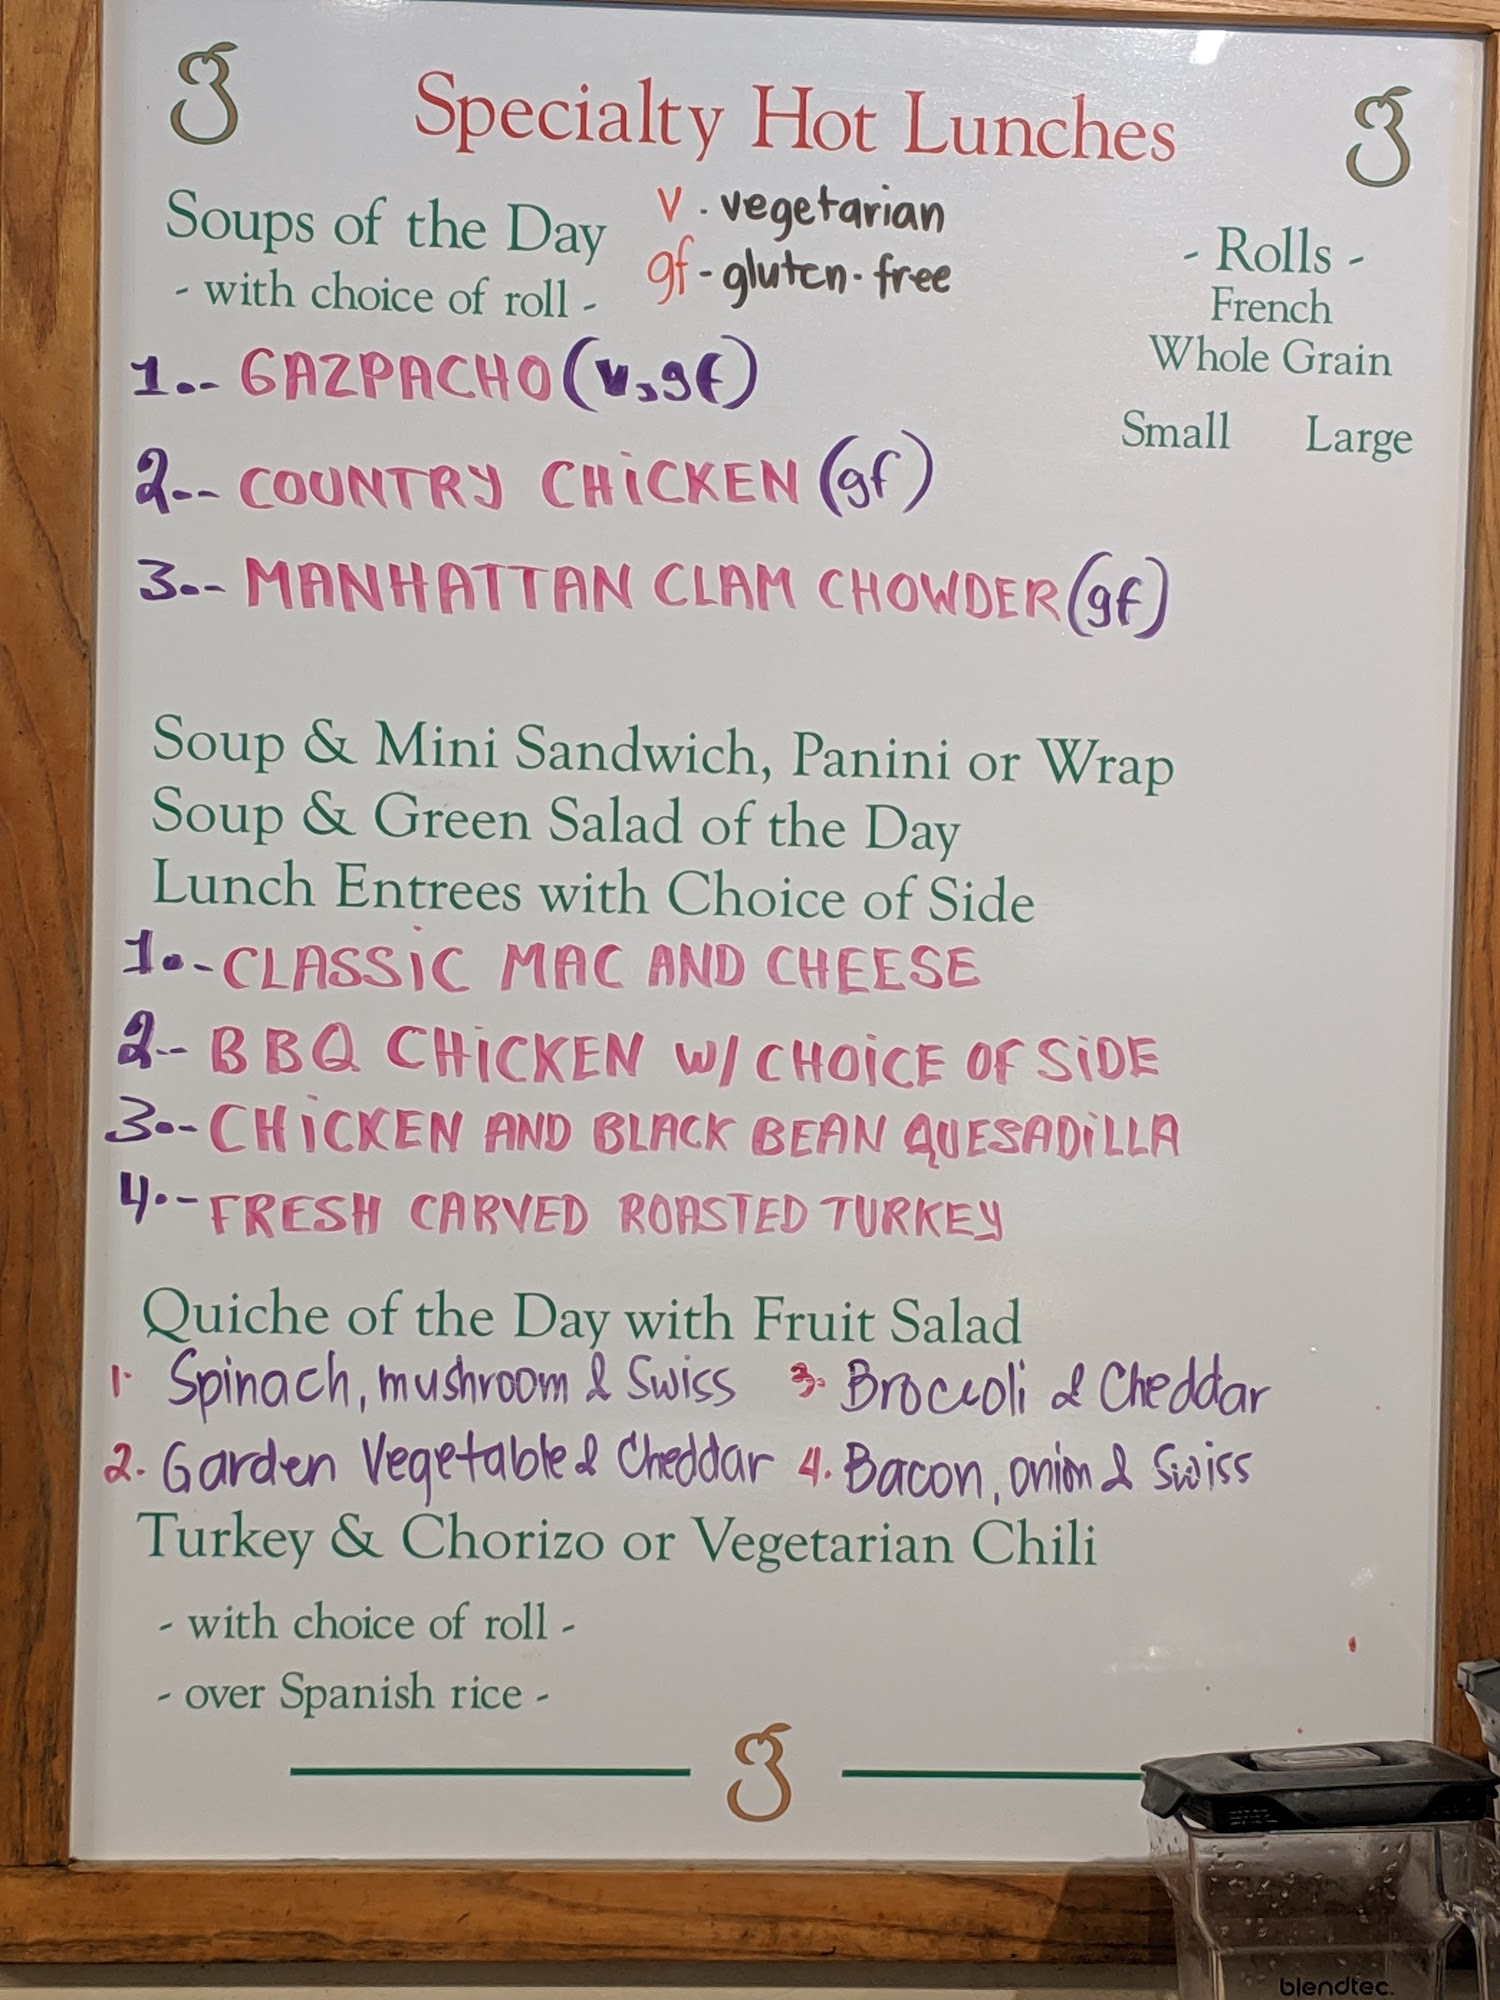 Specialty Hot Lunches
Soups of the Day
- with choice of roll -
v . vegetarian
gf - gluten - free
- Rolls -
French
Whole Grain
Small Large
1.- GAZPACHO (v, gf)
2.- COUNTRY CHICKEN (gf)
3.- MANHATTAN CLAM CHOWDER (gf)
Soup & Mini Sandwich, Panini or Wrap
Soup & Green Salad of the Day
Lunch Entrees with Choice of Side
1.- CLASSIC MAC AND CHEESE
2.- BBQ CHICKEN W/ CHOICE OF SIDE
3.- CHICKEN AND BLACK BEAN QUESADILLA
4.- FRESH CARVED ROASTED TURKEY
Quiche of the Day with Fruit Salad
1. Spinach, mushroom & Swiss 3. Broccoli & Cheddar
2. Garden Vegetable & Cheddar 4. Bacon, onion & Swiss
Turkey & Chorizo or Vegetarian Chili
- with choice of roll -
- over Spanish rice -
blendtec.